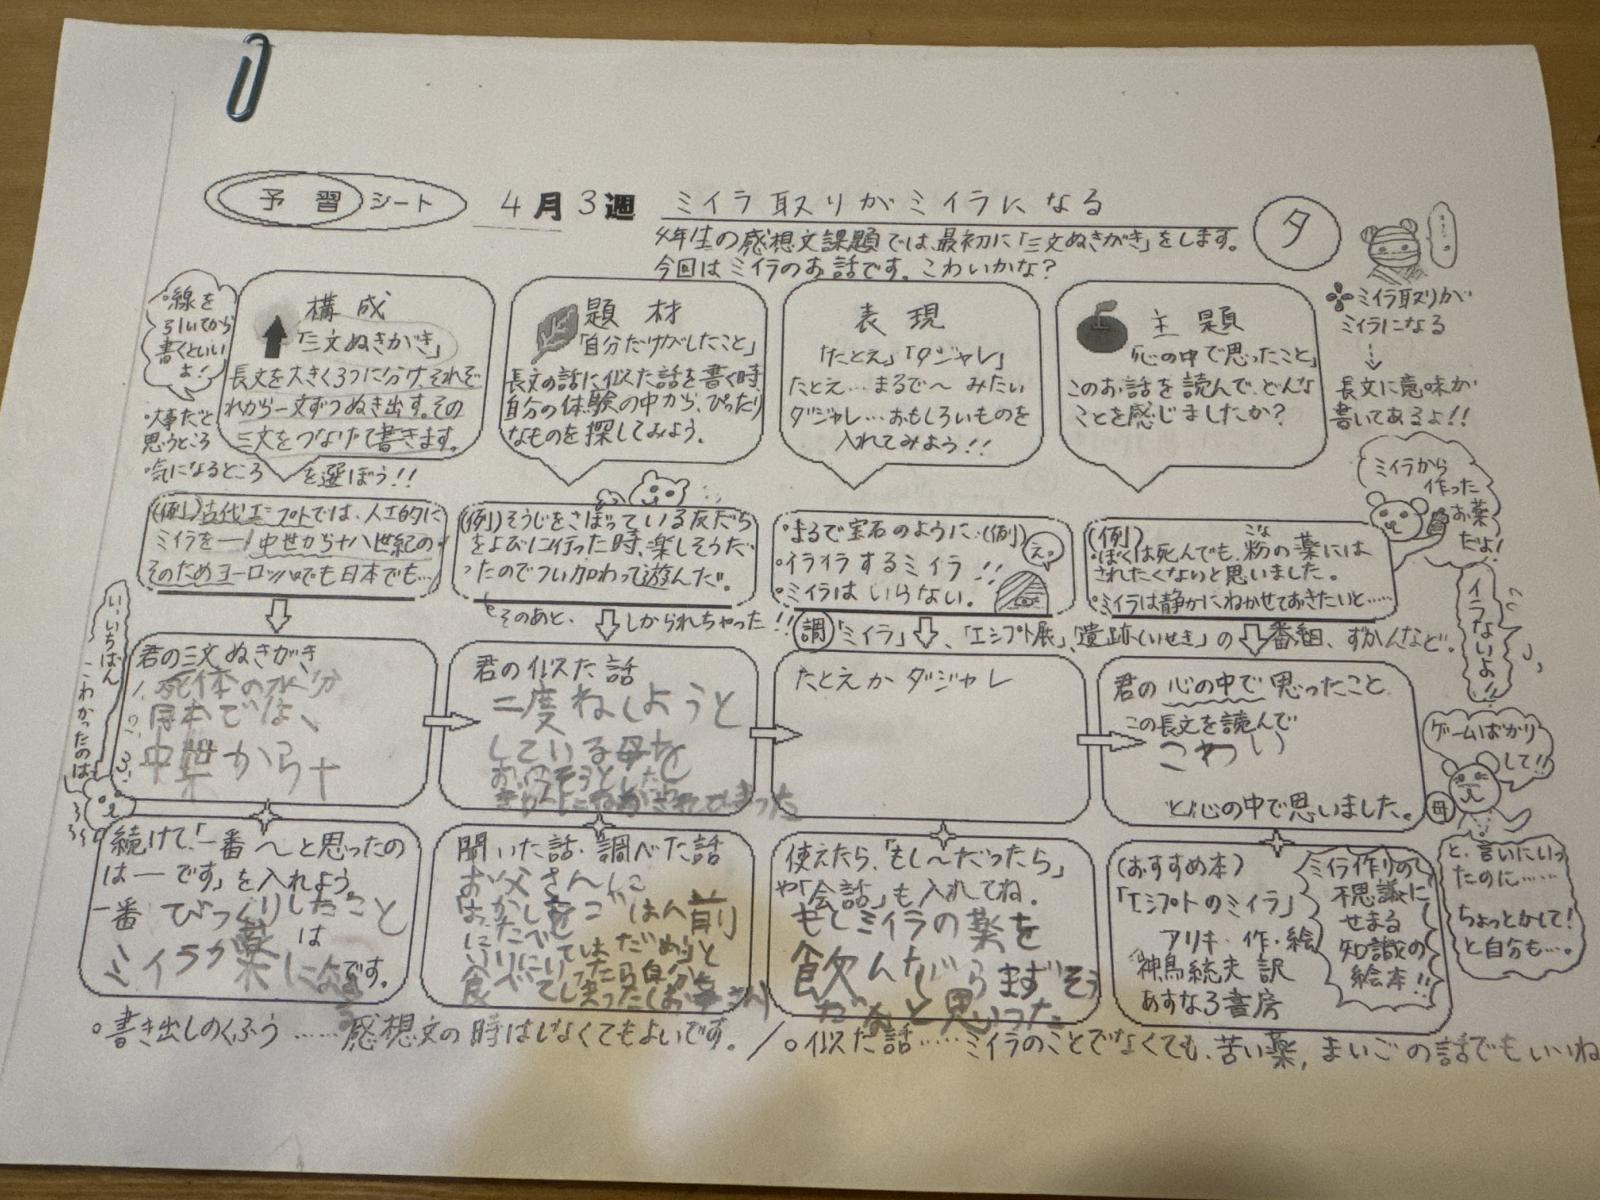 予習シート
4月3週 ミイラ取りがミイラになる
タ
4年生の感想文課題では、最初に「三文ぬきがき」をします。
今回はミイラのお話です。こわいかな?
・線を
引いてから
書くといい
よ!
・大事だと
思うところ
・気になるところ
を選ぼう!!
構成
「三文ぬきがき」
長文を大きく3つに分け、それぞ
れから一文ずつぬき出す。その
三文をつなげて書きます。
題材
「自分だけがしたこと」
長文の話に似た話を書く時、
自分の体験の中から、ぴったり
なものを探してみよう。
表現
「たとえ」「ダジャレ」
たとえ…まるで〜みたい
ダジャレ…おもしろいものを
入れてみよう!!
主題
「心の中で思ったこと」
このお話を読んで、どんな
ことを感じましたか?
ミイラ取りが
ミイラになる
長文に意味が
書いてあるよ!!
ミイラから
作った
お薬
だよ!
(例)古代エジプトでは、人工的に
ミイラを―/中世から十八世紀の―/
そのためヨーロッパでも日本でも…
(例)そうじをさぼっている友だち
をよびに行った時、楽しそうだ
ったのでつい加わって遊んだ。
そのあと、しかられちゃった!!
・まるで宝石のように…(例)
・イライラするミイラ!!
・ミイラはいらない。
え。
(例)
・ぼくは死んでも、粉の薬には
こな
されたくないと思いました。
・ミイラは静かにねかせておきたいと……
調「ミイラ」、「エジプト展」、「遺跡(いせき)」の番組、ずかんなど。
イラないよ!!
いちばん
こわかったのは
君の三文ぬきがき
1. 死体の水分
2. 日本では、
3. 中世から十
君の似た話
二度ねしようと
している母を
おこそうとしたら
たとえかダジャレ
君の心の中で思ったこと
この長文を読んで
こわい
と心の中で思いました。
ゲームばかり
して!!
母
と、言いにいっ
たのに……
ちょっとかして!
と自分も…。
続けて、「一番〜と思ったの
は―です」を入れよう。
一番びっくりしたこと
は
ミイラが薬になるです。
聞いた話・調べた話
お父さんに
おかしをごはん前
にたべていはだめと
いいにいったら自分も
食べてしまったお母さん
使えたら、「もし〜だったら」
や「会話」も入れてね.
もしミイラの薬を
飲んだらまずそう
だなと思いった
(おすすめ本)
「エジプトのミイラ」
アリキ・作・絵
神鳥統夫 訳
あすなろ書房
ミイラ作りの
不思議に
せまる
知識の
絵本!!
○書き出しのくふう……感想文の時はしなくてもよいです。/○似た話……ミイラのことでなくても、苦い薬,まいごの話でもいいね